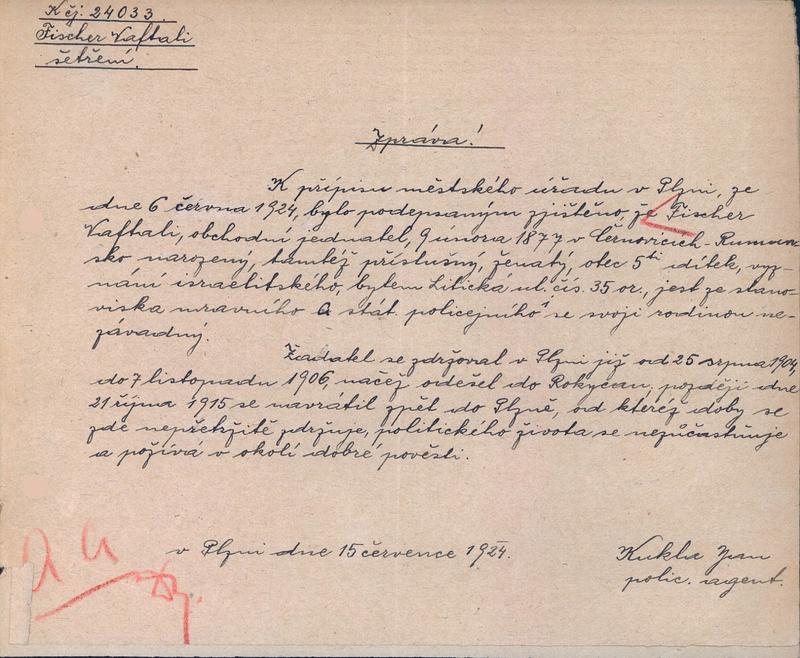 K čj. 24033
Fischer Naftali
šetření.
Zpráva!
K přípisu městského úřadu v Plzni, ze
dne 6 června 1924, bylo podepsaným zjištěno, že Fischer
Naftali, obchodní jednatel, 9 února 1877 v Černovicích-Rumun-
sko narozený, tamtéž příslušný, ženatý, otec 5ti dítek, vyz-
nání israelitského, bytem Litická ul. čís. 35 or., jest ze stano-
viska mravního a stát. policejního se svojí rodinou ne-
závadný.
Žadatel se zdržoval v Plzni již od 25 srpna 1904,
do 7 listopadu 1906, načež odešel do Rokycan, později dne
21 října 1915 se navrátil zpět do Plzně, od kteréž doby se
zde nepřetržitě zdržuje, politického života se nezúčastňuje
a požívá v okolí dobré pověsti.
v Plzni dne 15 července 1924.
Kukla Jan
polic. agent.